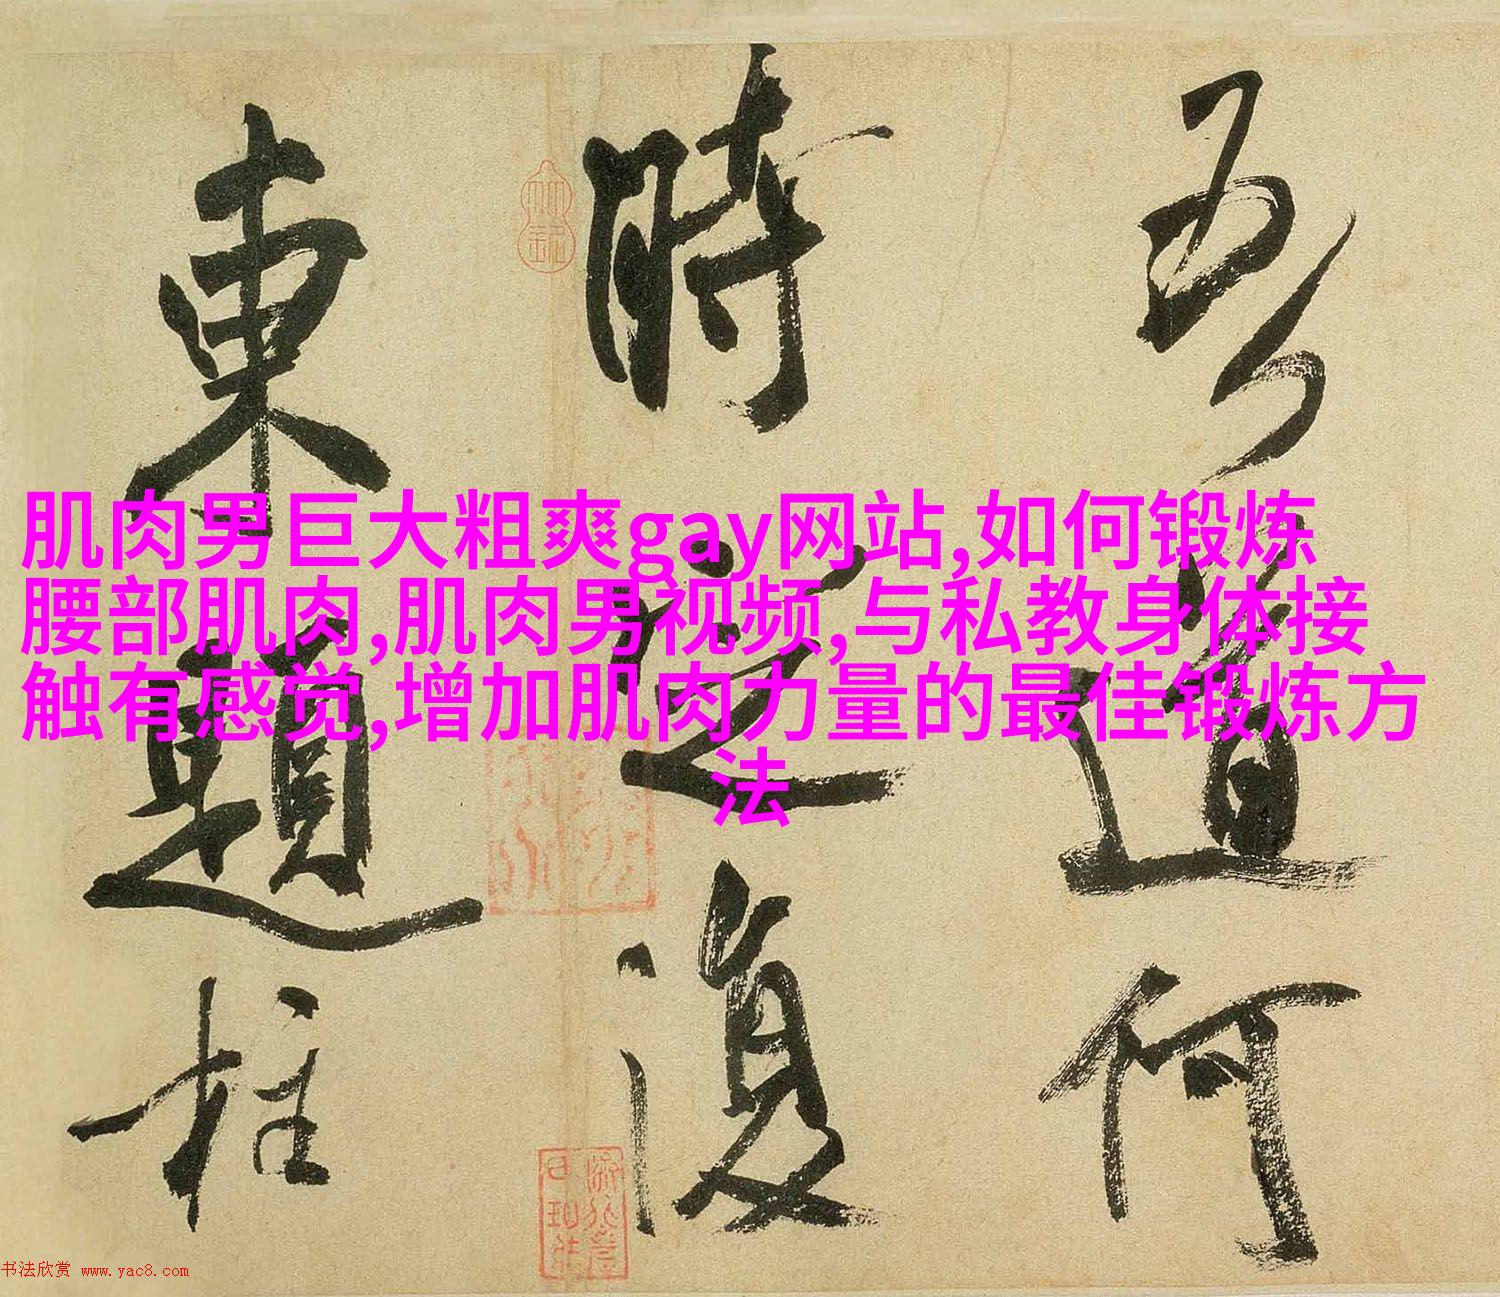 吾道何
時還復
東題柱
肌肉男巨大粗爽gay网站,如何锻炼
腰部肌肉,肌肉男视频,与私教身体接
触有感觉,增加肌肉力量的最佳锻炼方
法
书法欣赏 www.yac8.com